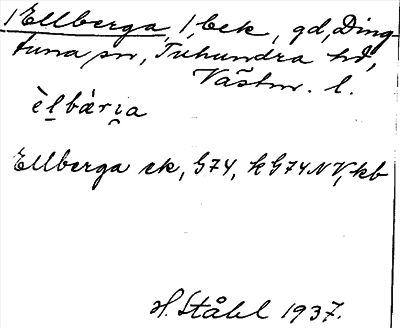 Ellberga, 1/6 ek, gd, Ding-
tuna sn, Tuhundra hd,
Västm. l.
èlbària
Ellberga ek, G74, k G74NV, kb
H. Ståhl 1937.